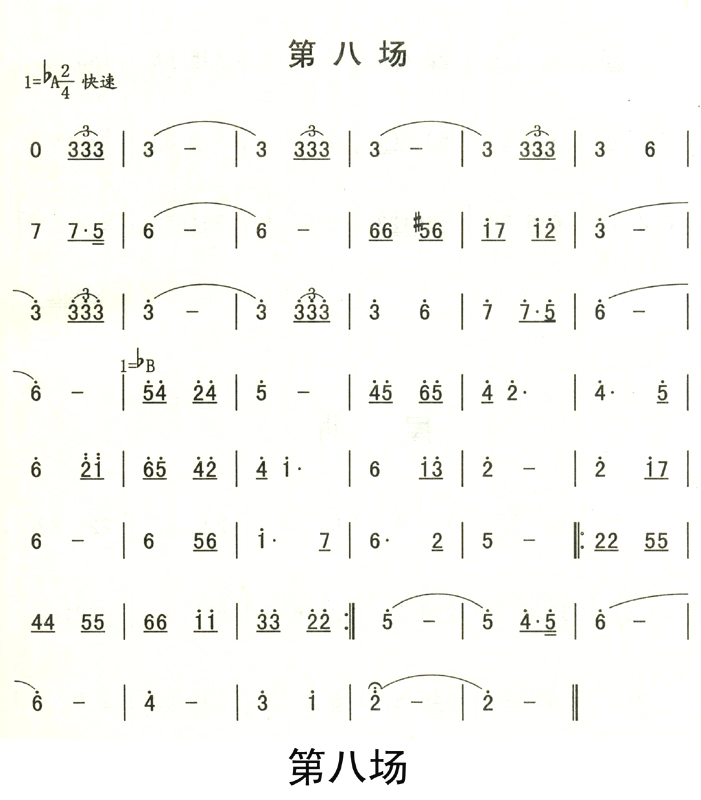 第八场
1=♭A 2/4 快速
0 333 | 3 – | 3 333 | 3 – | 3 333 | 3 6 |
7 7·5 | 6 – | 6 – | 66 #56 | i̇7 i̇2̇ | 3̇ – |
3̇ 3̇3̇3̇ | 3̇ – | 3̇ 3̇3̇3̇ | 3̇ 6̇ | 7̇ 7̇·5̇ | 6̇ – |
1=♭B
6̇ – | 5̇4̇ 2̇4̇ | 5̇ – | 4̇5̇ 6̇5̇ | 4̇ 2̇· | 4̇· 5̇ |
6̇ 2̈ï | 6̇5̇ 4̇2̇ | 4̇ i̇· | 6 i̇3̇ | 2̇ – | 2̇ i̇7 |
6 – | 6 56 | i̇· 7 | 6· 2 | 5 – ‖: 22 55 |
44 55 | 66 i̇i̇ | 3̇3̇ 2̇2̇ :‖ 5̇ – | 5̇ 4̇·5̇ | 6̇ – |
6̇ – | 4̇ – | 3̇ i̇ | 2̇ – | 2̇ – ‖
第八场